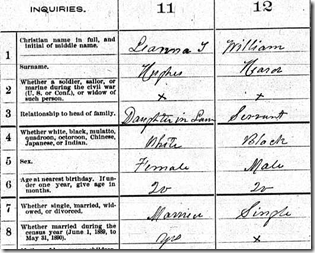 INQUIRIES. 11 12
1 Christian name in full, and initial of middle name. Leanna T William
Surname. Hughes
2 Whether a soldier, sailor, or marine during the civil war (U. S. or Conf.), or widow of such person. x x
3 Relationship to head of family. Daughter in Law Servant
4 Whether white, black, mulatto, quadroon, octoroon, Chinese, Japanese, or Indian. White Black
5 Sex. Female Male
6 Age at nearest birthday. If under one year, give age in months. 20 20
7 Whether single, married, widowed, or divorced. Married Single
8 Whether married during the census year (June 1, 1889, to May 31, 1890). yes x